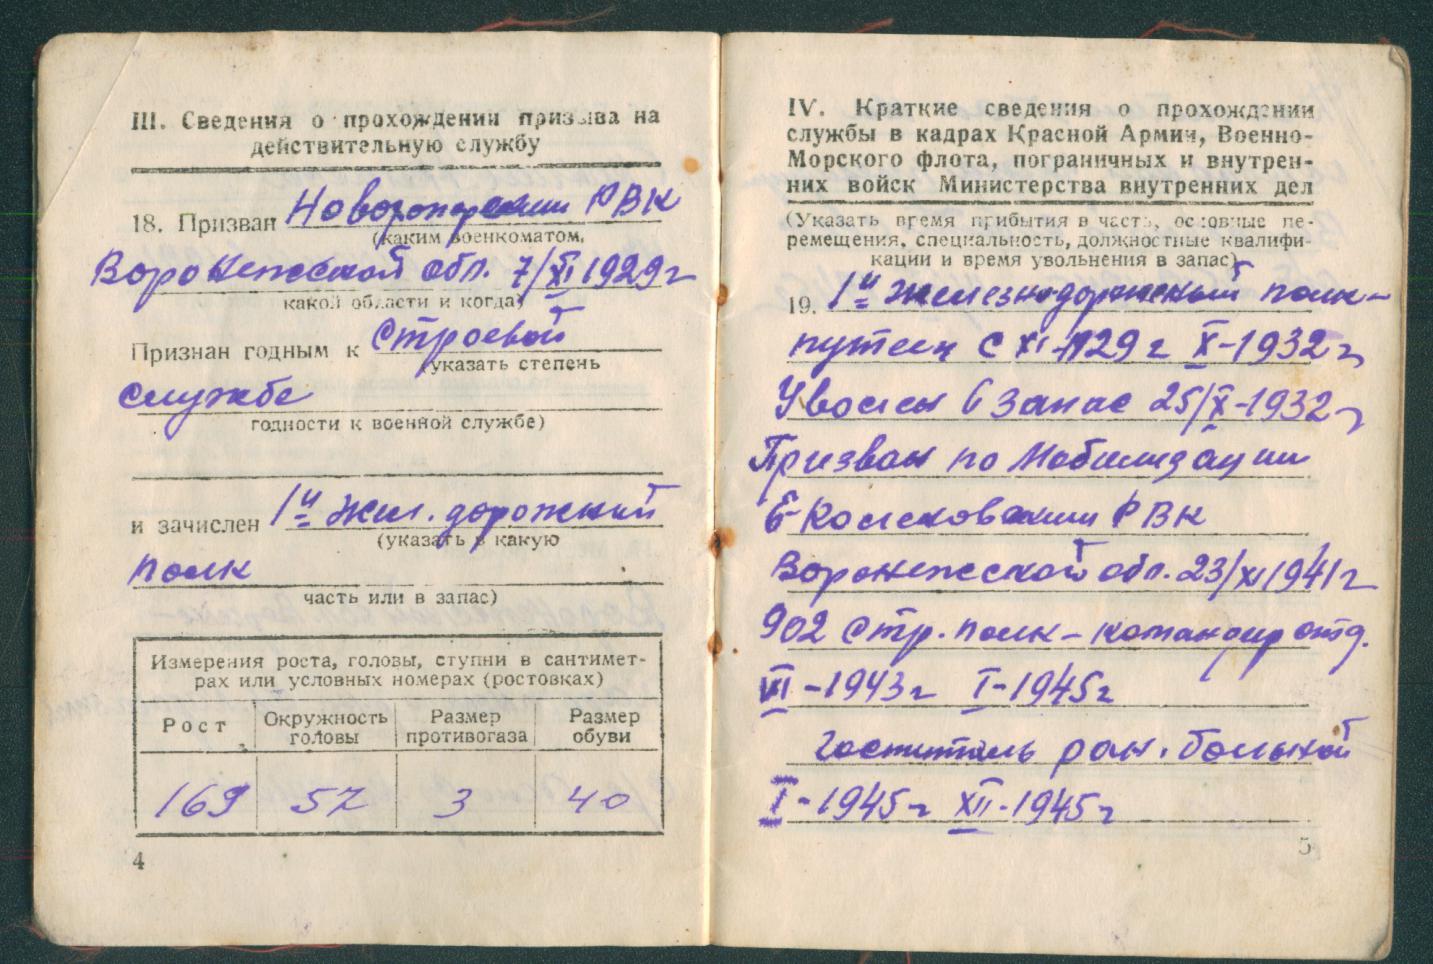 III. Сведения о прохождении призыва на
действительную службу
18. Призван РВК
(каким военкоматом,
Воронежской обл. 7/XI 1929 г
какой области и когда)
Признан годным к строевой
(указать степень
службе
годности к военной службе)
и зачислен 1й жел. дорожный
(указать в какую
полк
часть или в запас)
Измерения роста, головы, ступни в сантимет-
рах или условных номерах (ростовках)
Рост Окружность головы Размер противогаза Размер обуви
169 57 3 40
4
IV. Краткие сведения о прохождении
службы в кадрах Красной Армии, Военно-
Морского флота, пограничных и внутрен-
них войск Министерства внутренних дел
(Указать время прибытия в часть, основные пе-
ремещения, специальность, должностные квалифи-
кации и время увольнения в запас)
19. 1й железнодорожный полк-
путеец с XI-1929 г X-1932 г
Уволен в запас 25/X-1932 г
Призван по Мобилизации
РВК
Воронежской обл. 23/XI 1941 г
902 стр. полк – командир отд.
VI-1943 г I-1945 г
госпиталь ран. больной
I-1945 г XII-1945 г
5